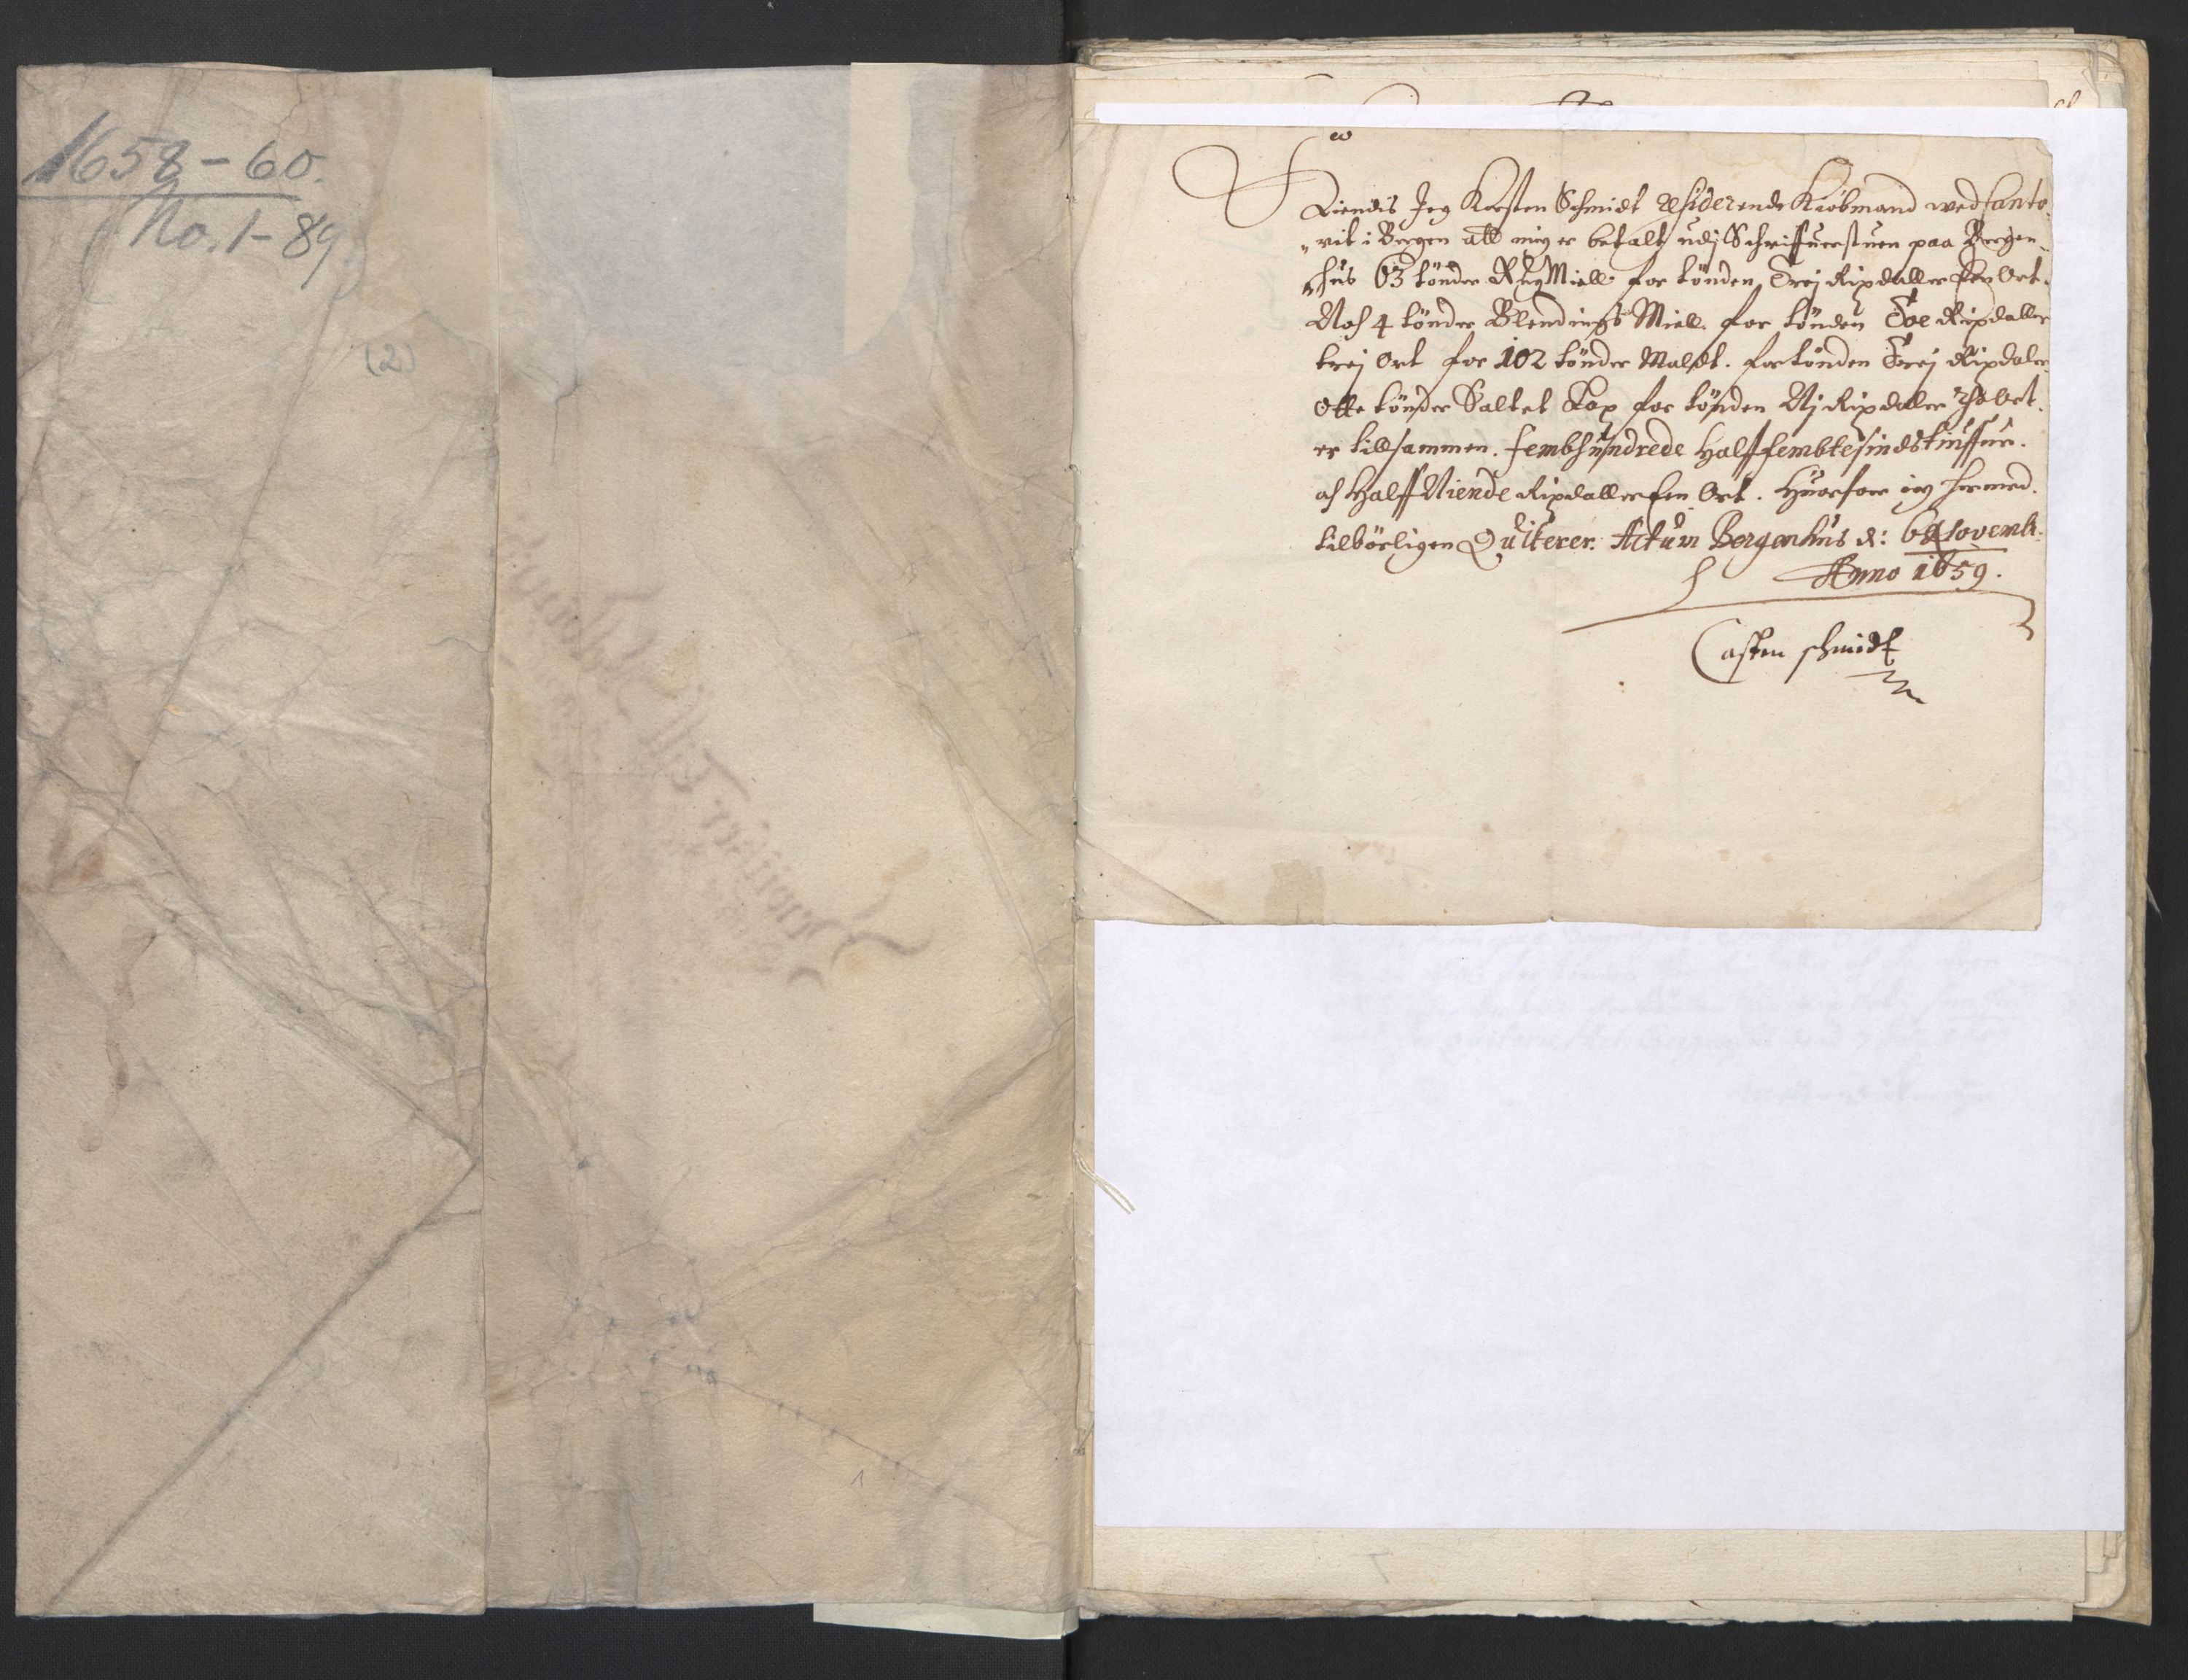 1658-60.
No. 1-89
(2)
1
Kiendis Jeg Karsten Schmidt residerende Kiøbmand wed Canto-
rit i Bergen att mig er betalt udj Schriffuerstuen paa Bergen-
hus 63 tønder Rug Miell for tønden Trej Rixdaller Een Ort.
Noch 4 tønder Blendings Miell. for tønden Toe Rixdaller
trej Ort for 102 tønder Maldt. for tønden Trej Rixdaler
Otte tønder Saltet for tønden Nj Rixdaller Ort.
er tillsammen. fembhundrede Halffembtesindstiuffue.
och Halff Niende Rixdaller Een Ort. Huorfore ieg hermed.
tilbørligen Quiterer. Actum Bergenhus d: 6 Novemb:
Anno 1659.
Casten schmidt